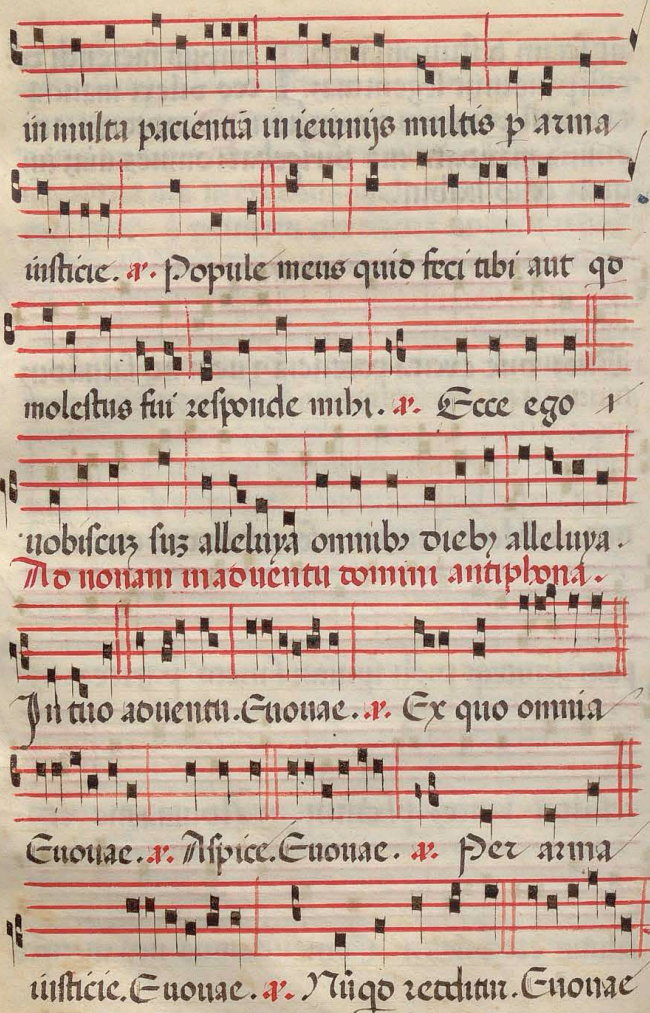 in multa pacientiā in ieiunijs multis ꝑ arma
iusticie. a. Popule meus quid feci tibi aut qd
molestus fui responde mihi. a. Ecce ego
uobiscuꝫ suꝫ alleluya omnibꝫ diebꝫ alleluya.
Ad nonam in aduentu domini antiphona.
In tuo aduentu. Euouae. a. Ex quo omnia
Euouae. a. Aspice. Euouae. a. Per arma
iusticie. Euouae. a. Nūqd redditur. Euouae